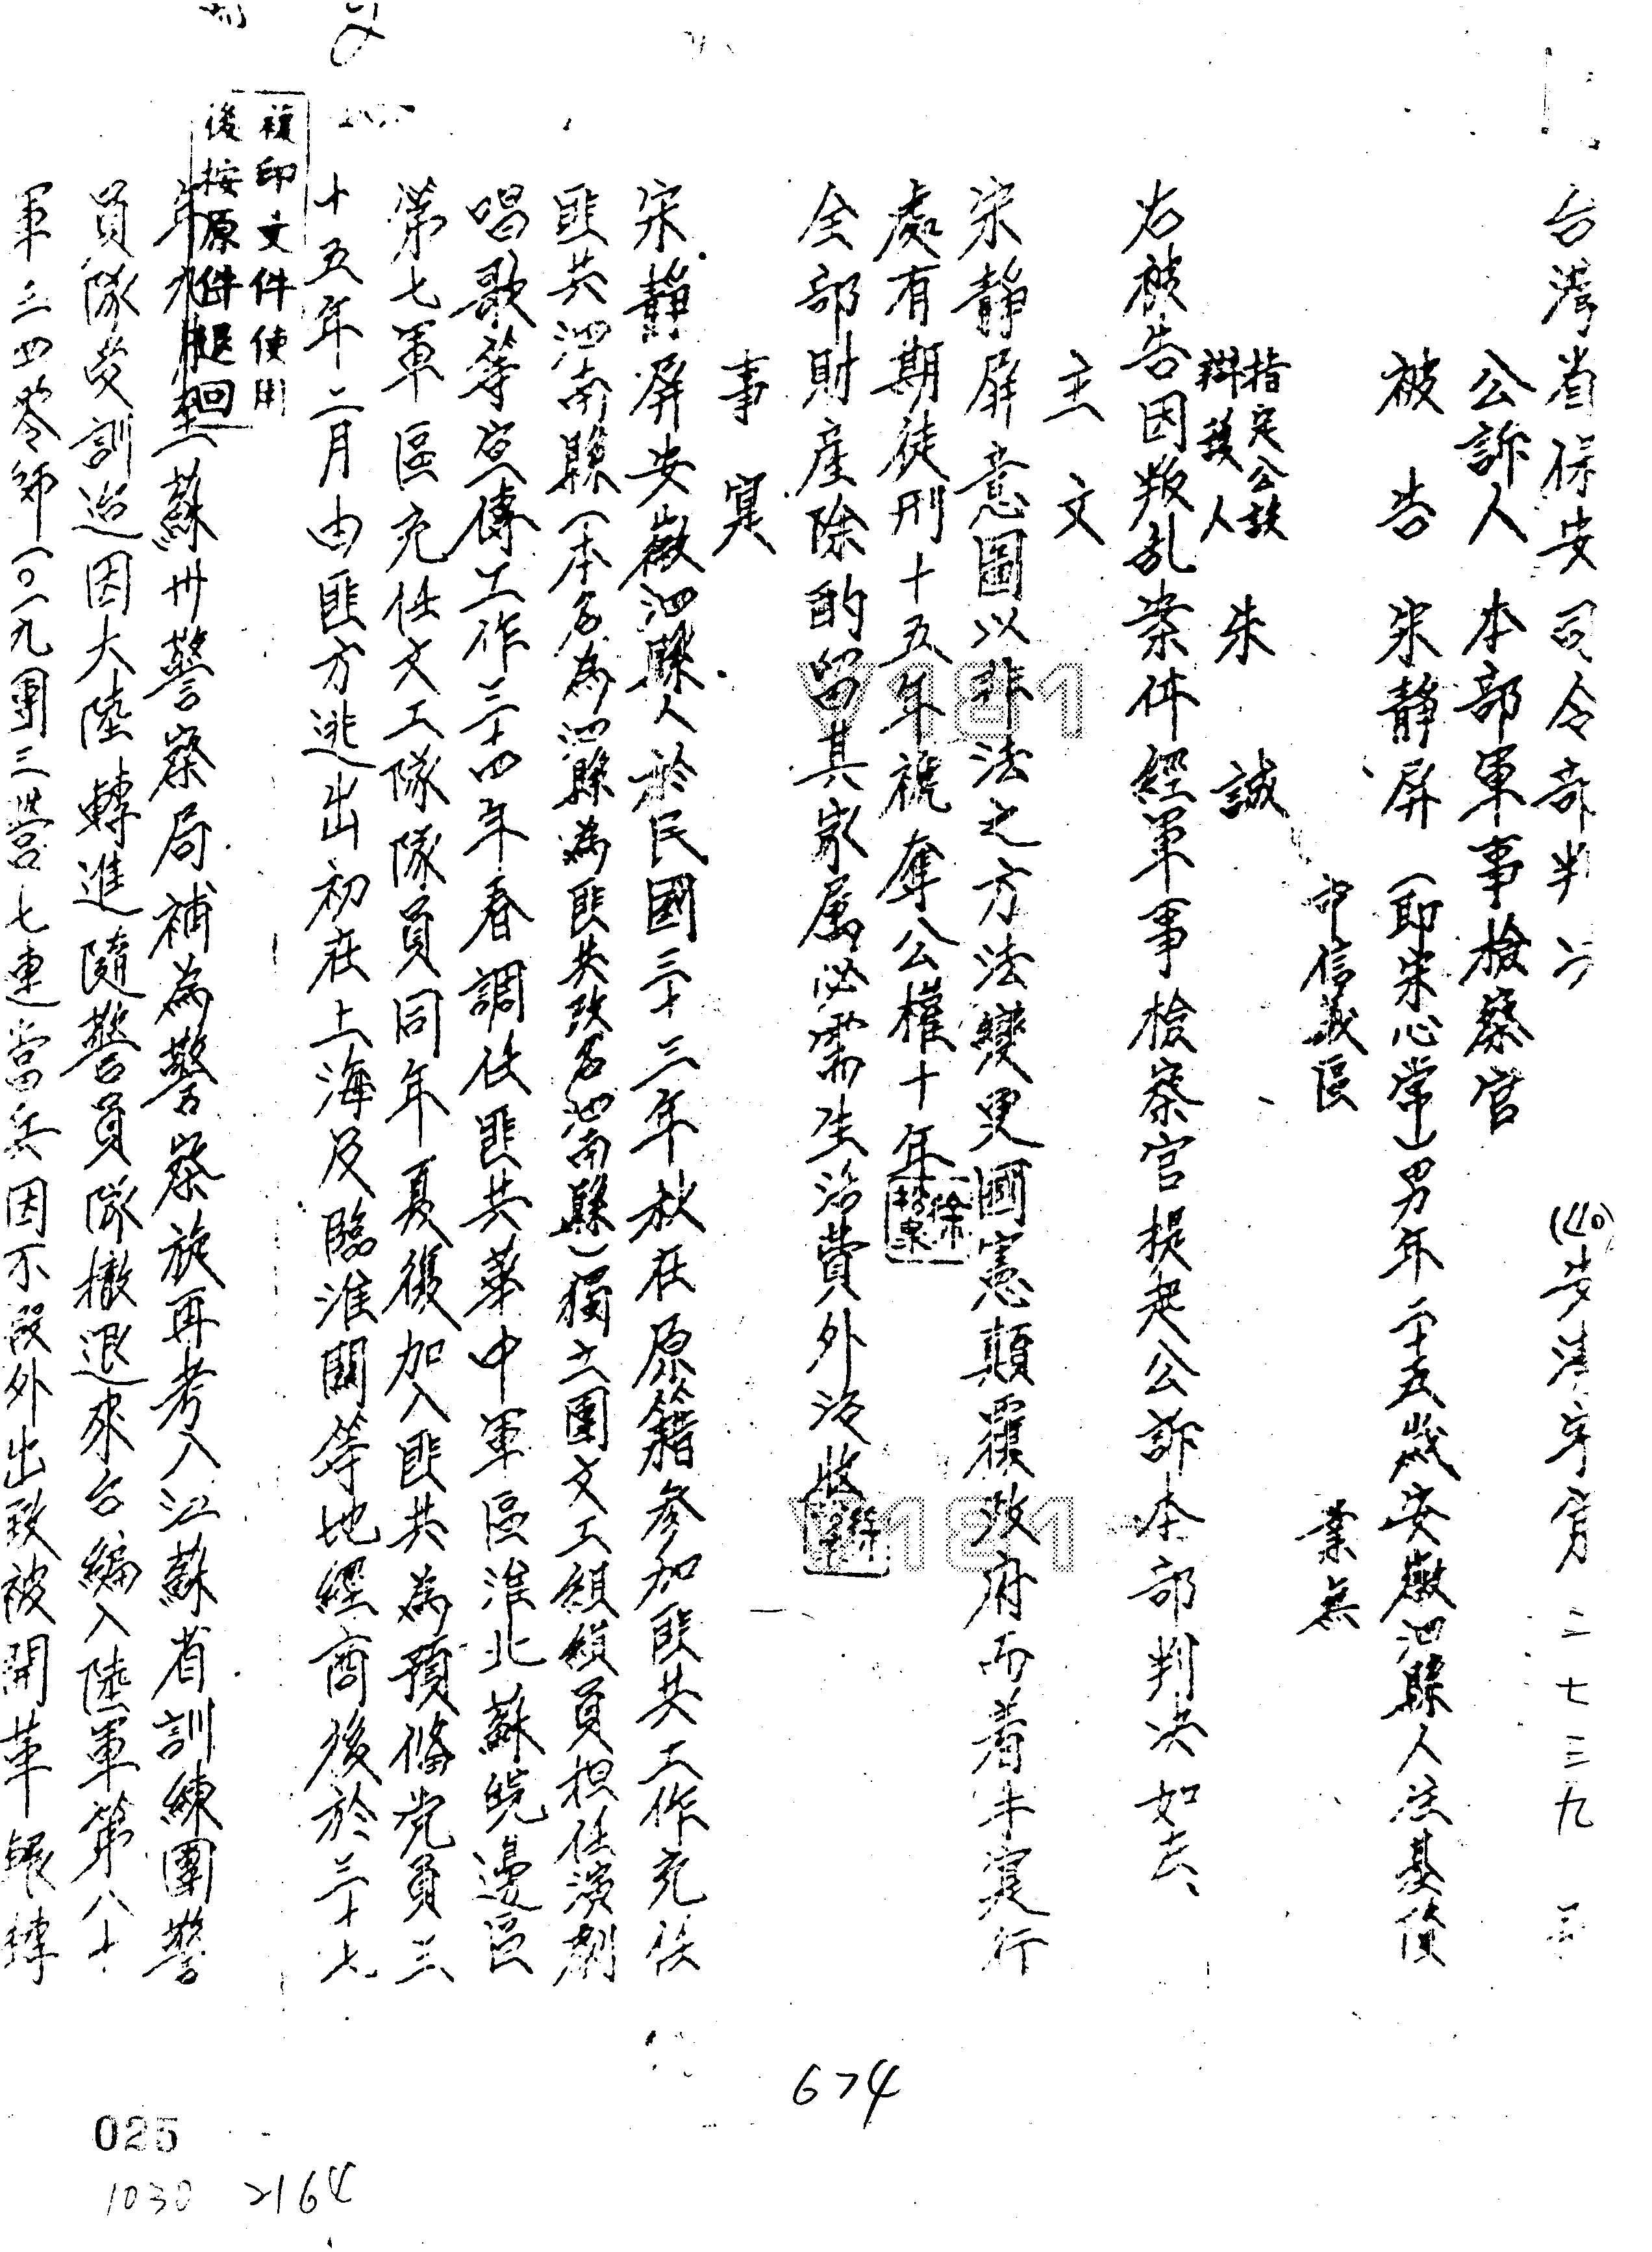 台灣省保安司令部判決 (40)安潔字第 二七三九
公訴人 本部軍事檢察官
被告 宋靜屏 (即宋心常)男年二十五歲安徽泗縣人住基隆
市信義區 業無
指定公設
辯護人 朱誠
右被告因叛乱案件經軍事檢察官提起公訴本部判決如左、
主文
宋靜屏意圖以非法之方法變更國憲顛覆政府而着手實行
處有期徒刑十五年褫奪公權十年
全部財產除酌留其家屬必需生活費外沒收
事實
宋靜屏安徽泗縣人於民國三十三年秋在原籍參加匪共工作充任
匪共泗南縣(本名為泗縣為匪共改名泗南縣)獨立團文工組組員担任演劇
唱歌等宣傳工作三十四年春調任匪共華中軍區淮北蘇皖邊區
第七軍區充任文工隊隊員同年夏復加入匪共為預備党員三
十五年二月由匪方逃出初在上海及臨淮關等地經商後於三十七
複印文件使用
後按原件退回
年九月至蘇州警察局補為警察旋再考入江蘇省訓練團警
員隊受訓迨因大陸轉進隨警員隊撤退來台編入陸軍第八十
軍三四零師一〇一九團三營七連當兵因不假外出致被開革輾轉
674
025
1030 2164
V181
V181